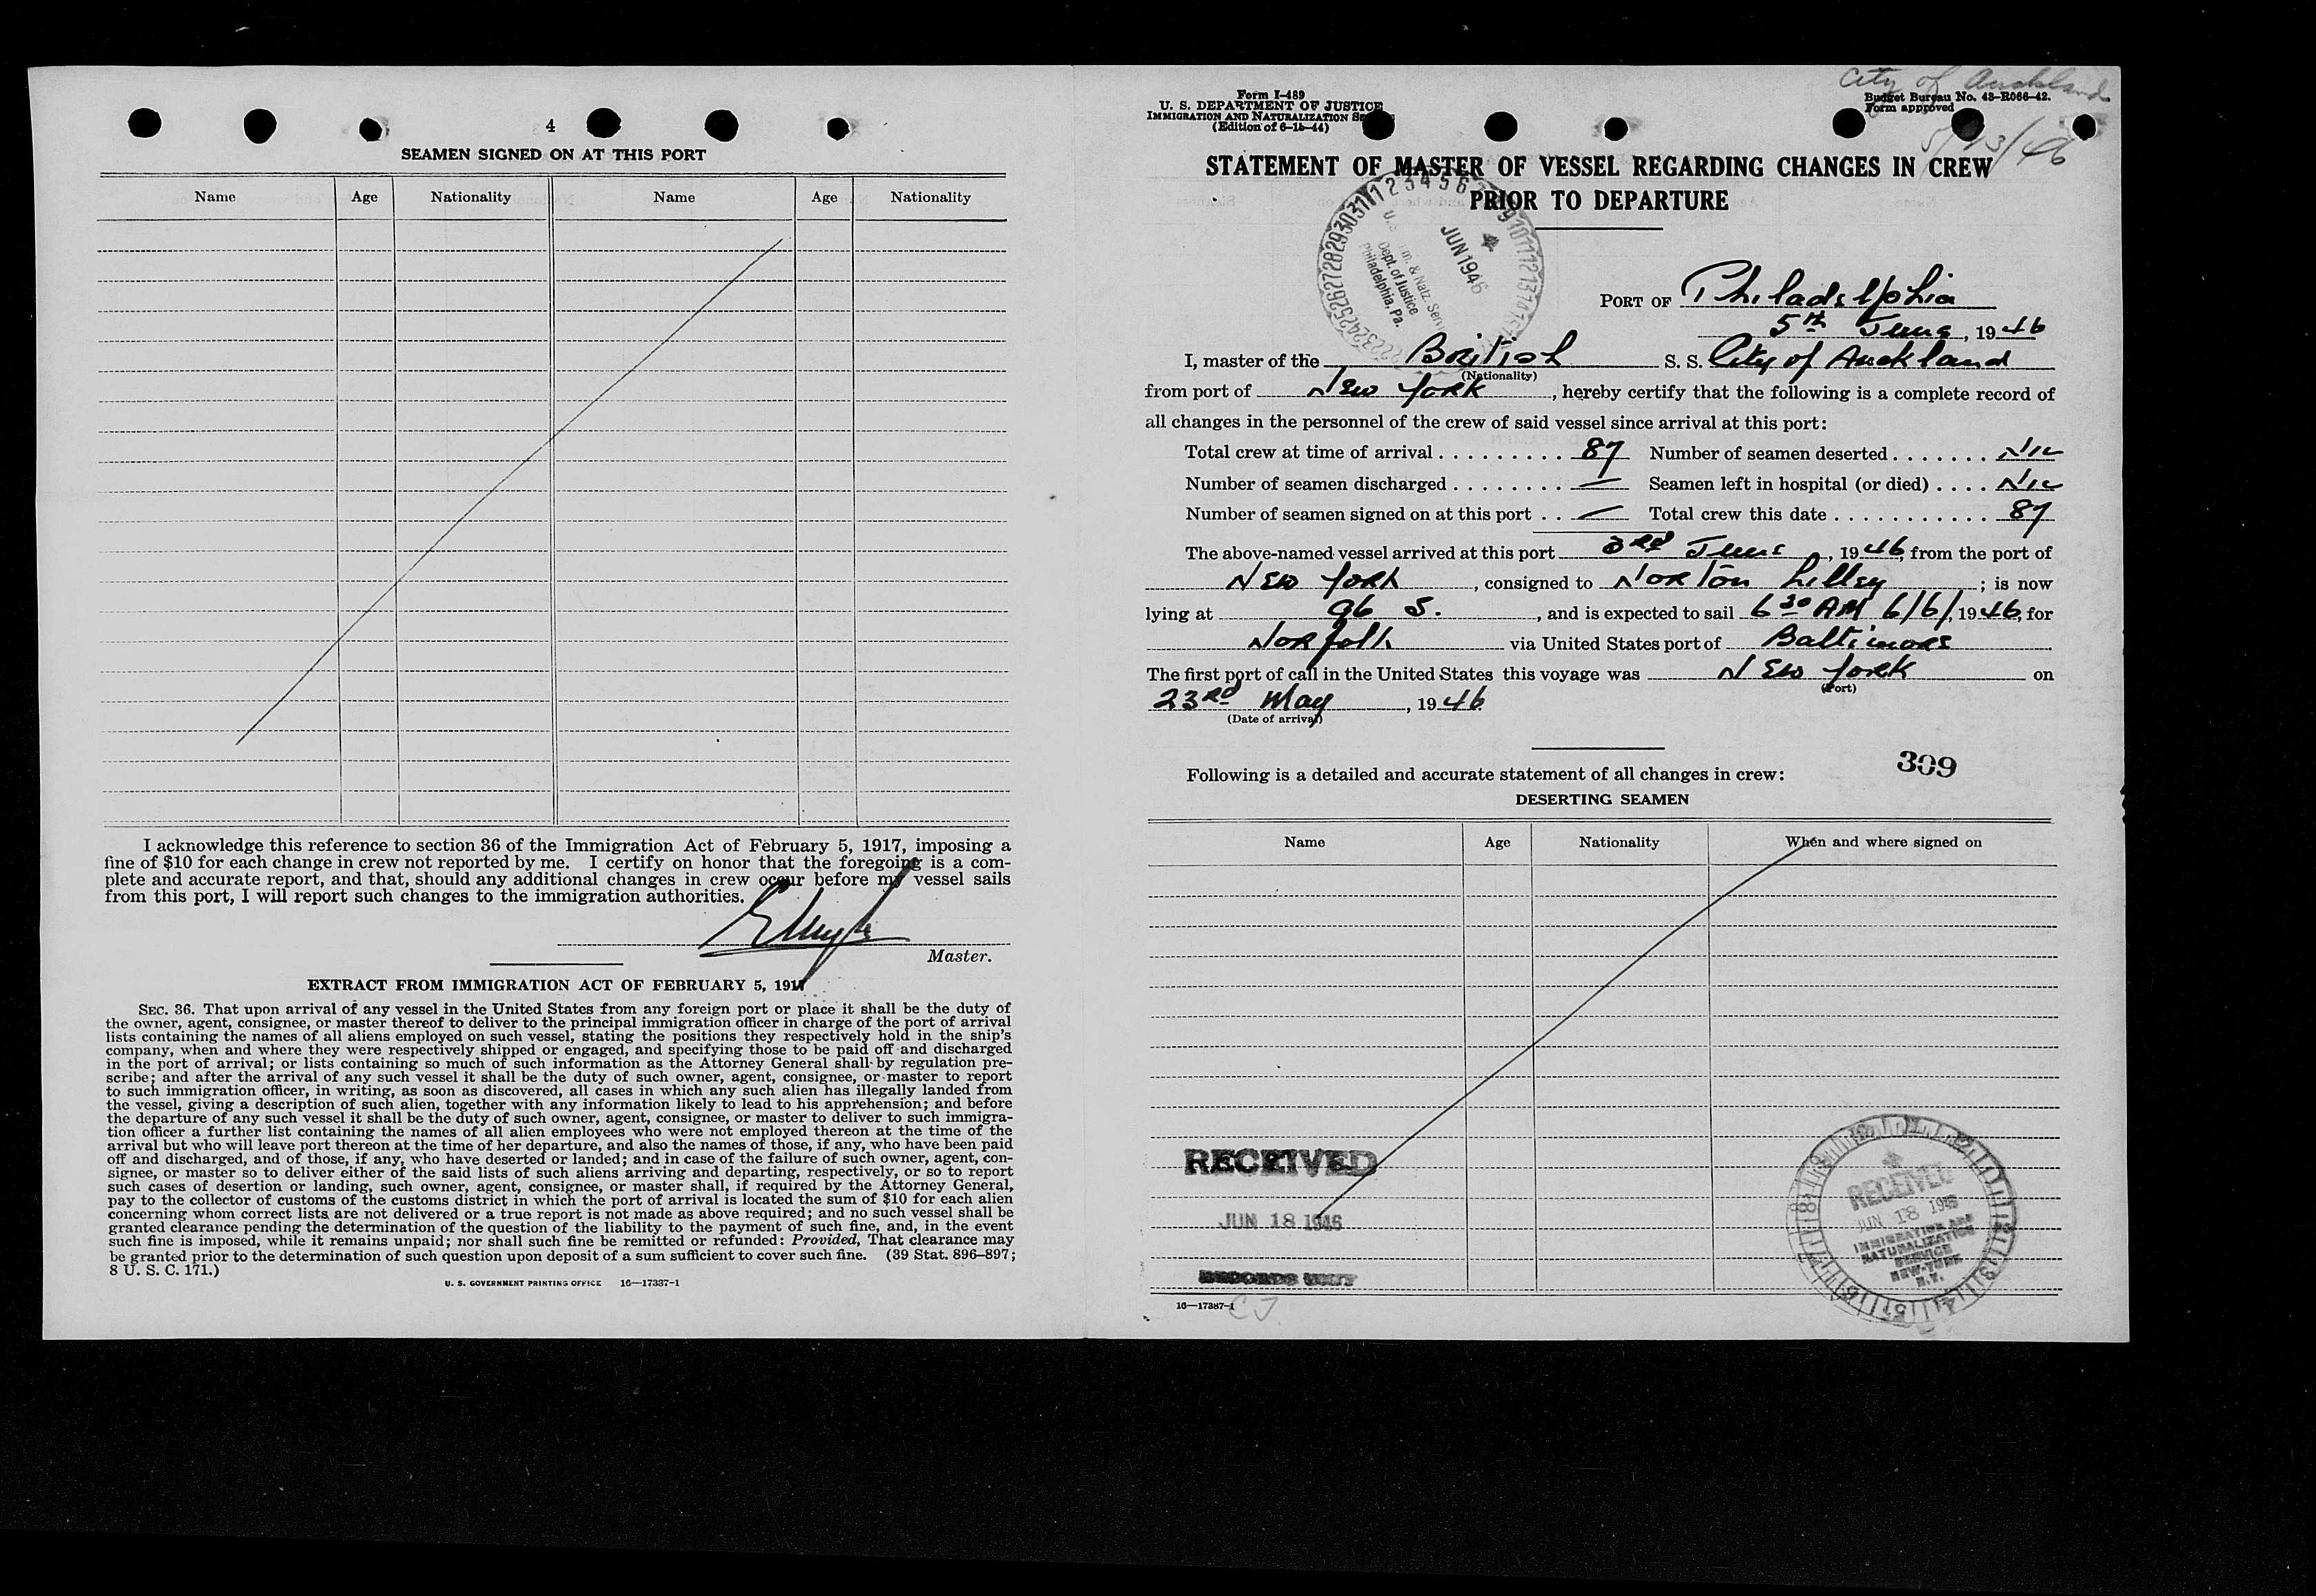 4
SEAMEN SIGNED ON AT THIS PORT
Name Age Nationality Name Age Nationality
I acknowledge this reference to section 36 of the Immigration Act of February 5, 1917, imposing a
fine of $10 for each change in crew not reported by me. I certify on honor that the foregoing is a com-
plete and accurate report, and that, should any additional changes in crew occur before my vessel sails
from this port, I will report such changes to the immigration authorities.
Master.
EXTRACT FROM IMMIGRATION ACT OF FEBRUARY 5, 1917
SEC. 36. That upon arrival of any vessel in the United States from any foreign port or place it shall be the duty of
the owner, agent, consignee, or master thereof to deliver to the principal immigration officer in charge of the port of arrival
lists containing the names of all aliens employed on such vessel, stating the positions they respectively hold in the ship's
company, when and where they were respectively shipped or engaged, and specifying those to be paid off and discharged
in the port of arrival; or lists containing so much of such information as the Attorney General shall by regulation pre-
scribe; and after the arrival of any such vessel it shall be the duty of such owner, agent, consignee, or master to report
to such immigration officer, in writing, as soon as discovered, all cases in which any such alien has illegally landed from
the vessel, giving a description of such alien, together with any information likely to lead to his apprehension; and before
the departure of any such vessel it shall be the duty of such owner, agent, consignee, or master to deliver to such immigra-
tion officer a further list containing the names of all alien employees who were not employed thereon at the time of the
arrival but who will leave port thereon at the time of her departure, and also the names of those, if any, who have been paid
off and discharged, and of those, if any, who have deserted or landed; and in case of the failure of such owner, agent, con-
signee, or master so to deliver either of the said lists of such aliens arriving and departing, respectively, or so to report
such cases of desertion or landing, such owner, agent, consignee, or master shall, if required by the Attorney General,
pay to the collector of customs of the customs district in which the port of arrival is located the sum of $10 for each alien
concerning whom correct lists are not delivered or a true report is not made as above required; and no such vessel shall be
granted clearance pending the determination of the question of the liability to the payment of such fine, and, in the event
such fine is imposed, while it remains unpaid; nor shall such fine be remitted or refunded: Provided, That clearance may
be granted prior to the determination of such question upon deposit of a sum sufficient to cover such fine. (39 Stat. 896-897;
8 U. S. C. 171.)
U. S. GOVERNMENT PRINTING OFFICE 16—17387-1
City of Auckland
Form I-489
U. S. DEPARTMENT OF JUSTICE
IMMIGRATION AND NATURALIZATION
(Edition of 6-15-44)
Budget Bureau No. 43-R066-42.
Form approved
5/23/46
STATEMENT OF MASTER OF VESSEL REGARDING CHANGES IN CREW
PRIOR TO DEPARTURE
JUN 1946
Dept. of Justice
Philadelphia, Pa.
PORT OF Philadelphia
5th June, 1946
I, master of the British S. S. City of Auckland
(Nationality)
from port of New York, hereby certify that the following is a complete record of
all changes in the personnel of the crew of said vessel since arrival at this port:
Total crew at time of arrival . . . . . . . . . 87 Number of seamen deserted . . . . . . . Nil
Number of seamen discharged . . . . . . . . — Seamen left in hospital (or died) . . . . Nil
Number of seamen signed on at this port . . — Total crew this date . . . . . . . . . . . . 87
The above-named vessel arrived at this port 3rd June, 1946, from the port of
New York, consigned to Norton Lilley; is now
lying at 96 S., and is expected to sail 6 30 AM 6/6/, 1946, for
Norfolk via United States port of Baltimore
The first port of call in the United States this voyage was New York on
(Port)
23rd May, 1946
(Date of arrival)
309
Following is a detailed and accurate statement of all changes in crew:
DESERTING SEAMEN
Name Age Nationality When and where signed on
RECEIVED
JUN 18 1946
RECORDS UNIT
RECEIVED
JUN 18 1946
IMMIGRATION AND
NATURALIZATION
SERVICE
NEW YORK
N.Y.
16—17387-1 CJ